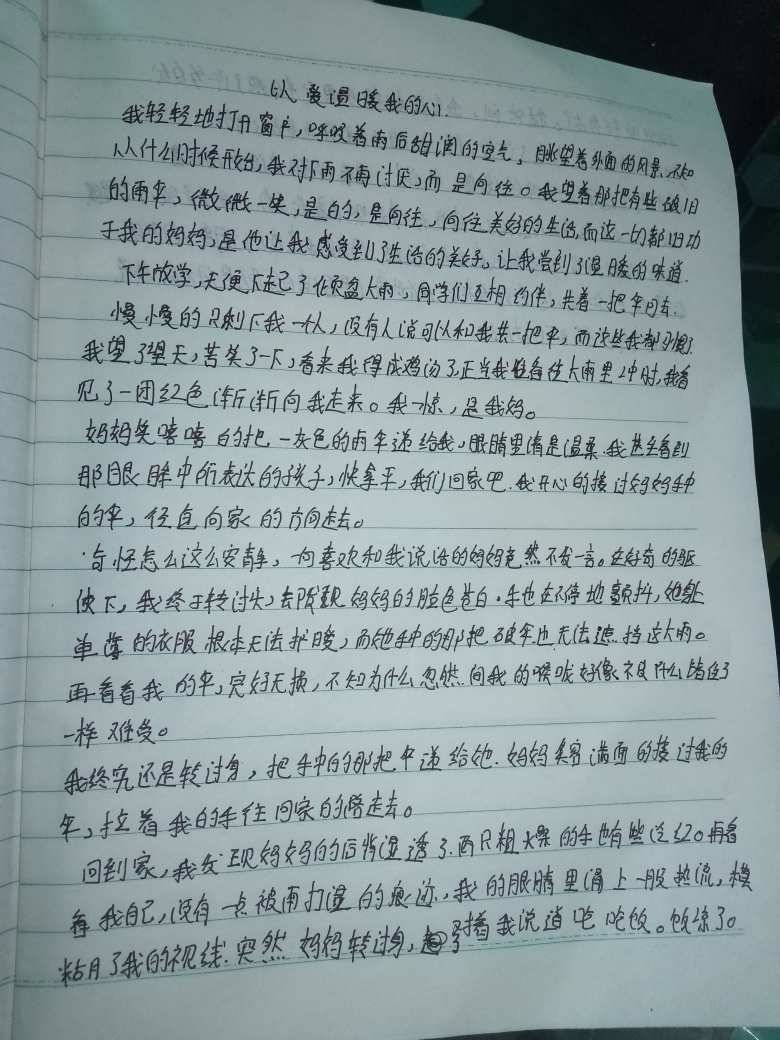 你爱温暖我的心
我轻轻地打开窗户，呼吸着雨后甜润的空气，眺望着外面的风景，不知
从什么时候开始，我对下雨不再讨厌，而是向往。我望着那把有些破旧
的雨伞，微微一笑，是的，是向往，向往美好的生活，而这一切都归功
于我的妈妈，是他让我感受到了生活的美好，让我尝到了温暖的味道.
下午放学，天便下起了倾盆大雨，同学们互相约伴，共着一把伞回去.
慢慢的只剩下我一人，没有人说可以和我共一把伞，而这些我都习惯了.
我望了望天，苦笑了一下，看来我得成鸡汤了，正当我准备往大雨里冲时，我看
见了一团红色渐渐向我走来。我一惊，是我妈。
妈妈笑嘻嘻的把一灰色的雨伞递给我，眼睛里满是温柔.我甚至看到
那眼眸中所表达的孩子，快拿伞，我们回家吧.我开心的接过妈妈手中
的伞，径直向家的方向走去。
奇怪怎么这么安静，一向喜欢和我说话的妈妈竟然不发一言。在好奇的驱
使下，我终于转过头，去发现妈妈的脸色苍白.手也在不停地颤抖，她身
单薄的衣服根本无法护暖，而她手中的那把破伞也无法遮挡这大雨。
再看看我的伞，完好无损，不知为什么忽然间我的喉咙好像被什么堵住了
一样难受。
我终究还是转过身，把手中的那把伞递给她.妈妈笑容满面的接过我的
伞，拉着我的手往回家的路走去。
回到家，我发现妈妈的后背湿透了.两只粗糙的手也有些泛红。再看
看我自己，没有一点被雨打湿的痕迹，我的眼睛里涌上一股热流，模
粘月了我的视线.突然妈妈转过身，对着我说道吃吃饭。饭凉了。